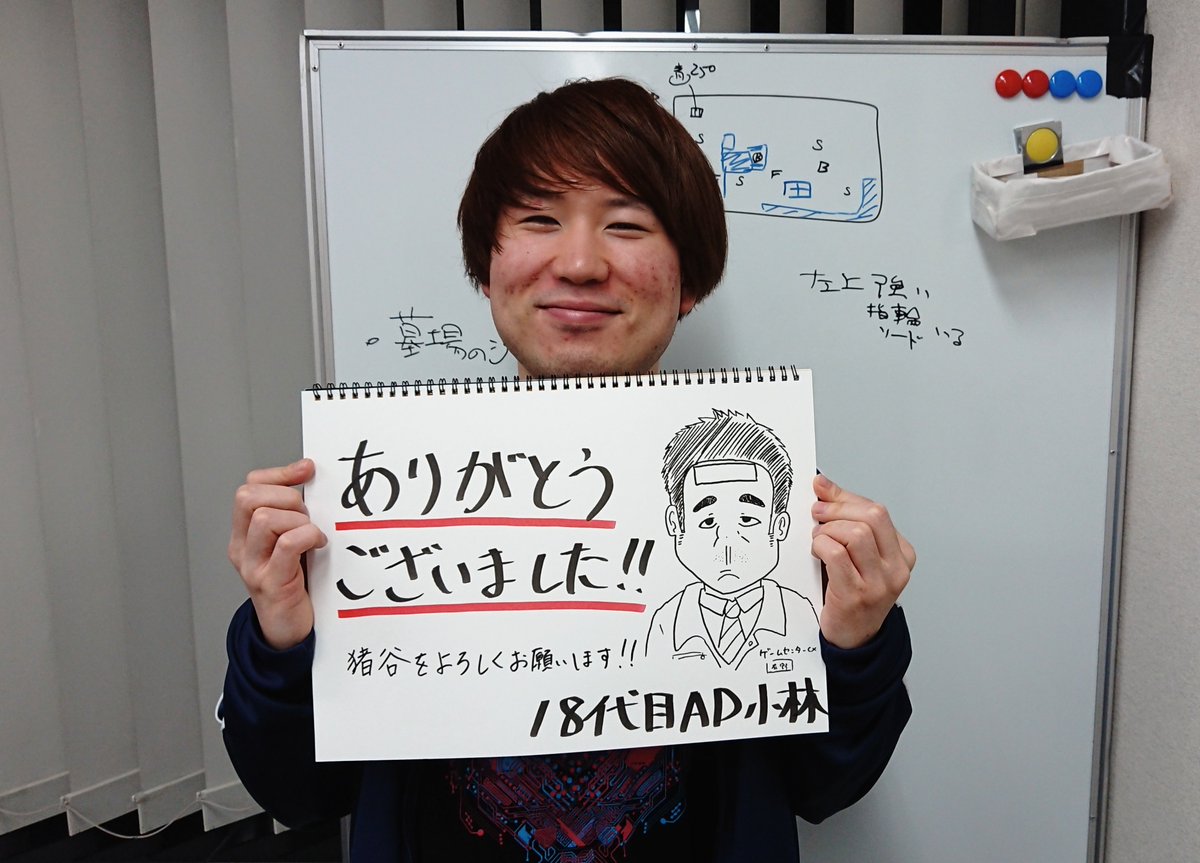 青250
S
S
B
S
F
S
左上強い
指輪
ソード いる
・墓場の
ありがとう
ございました!!
猪谷をよろしくお願いします!!
ゲームセンターCX
18代目AD小林